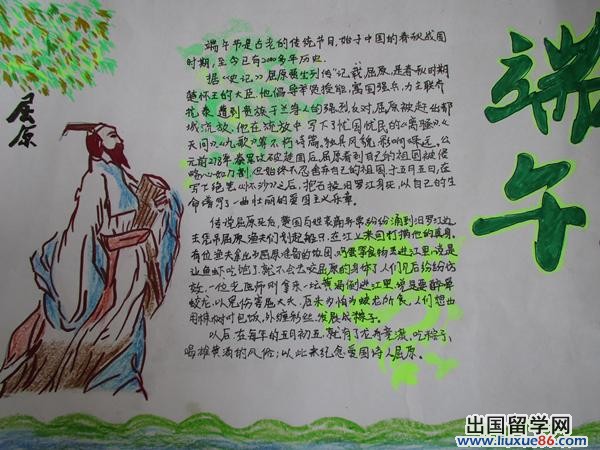 端午
屈原
端午节是古老的传统节日,始于中国的春秋战国
时期,至今已有2000多年历史。
据《史记》屈原贾生列传"记载,屈原,是春秋时期
楚怀王的大臣。他倡导举贤授能,富国强兵,力主联齐
抗秦,遭到贵族子兰等人的强烈反对,屈原被赶出都
城流放,他在流放中写下了忧国忧民的《离骚》《
天问》《九歌》等不朽诗篇,独具风貌,影响
元前278年,秦军攻破楚国后,屈原看到自己的祖国被侵
略心如刀割,但始终不忍舍弃自己的祖国,于五月五日,在
写下绝笔《怀沙》之后,抱石投汨罗江身死,以自己的生
命谱写了一曲壮丽的爱国主义乐章。
传说屈原死后,楚国百姓哀痛异常纷纷涌到汨罗江边
去凭吊屈原。渔夫们划起船只,在江上来回打捞他的真身。
有位渔夫拿出为屈原准备的饭团,鸡蛋等食物丢进江里,说是
让鱼虾吃饱了,就不会去咬屈原的身体了,人们见后纷纷仿
效一位老医师则拿来一坛黄酒倒进江里,说是要醉晕
蛟龙,以免伤害屈大夫,后来为怕为蛟龙所食,人们想出
用楝树叶包饭,外缠彩丝,发展成粽子。
以后,在每年的五月初五,就有了龙舟竞渡,吃粽子,
喝雄黄酒的风俗;以此来纪念爱国诗人屈原。
出国留学网
www.liuxue86.com